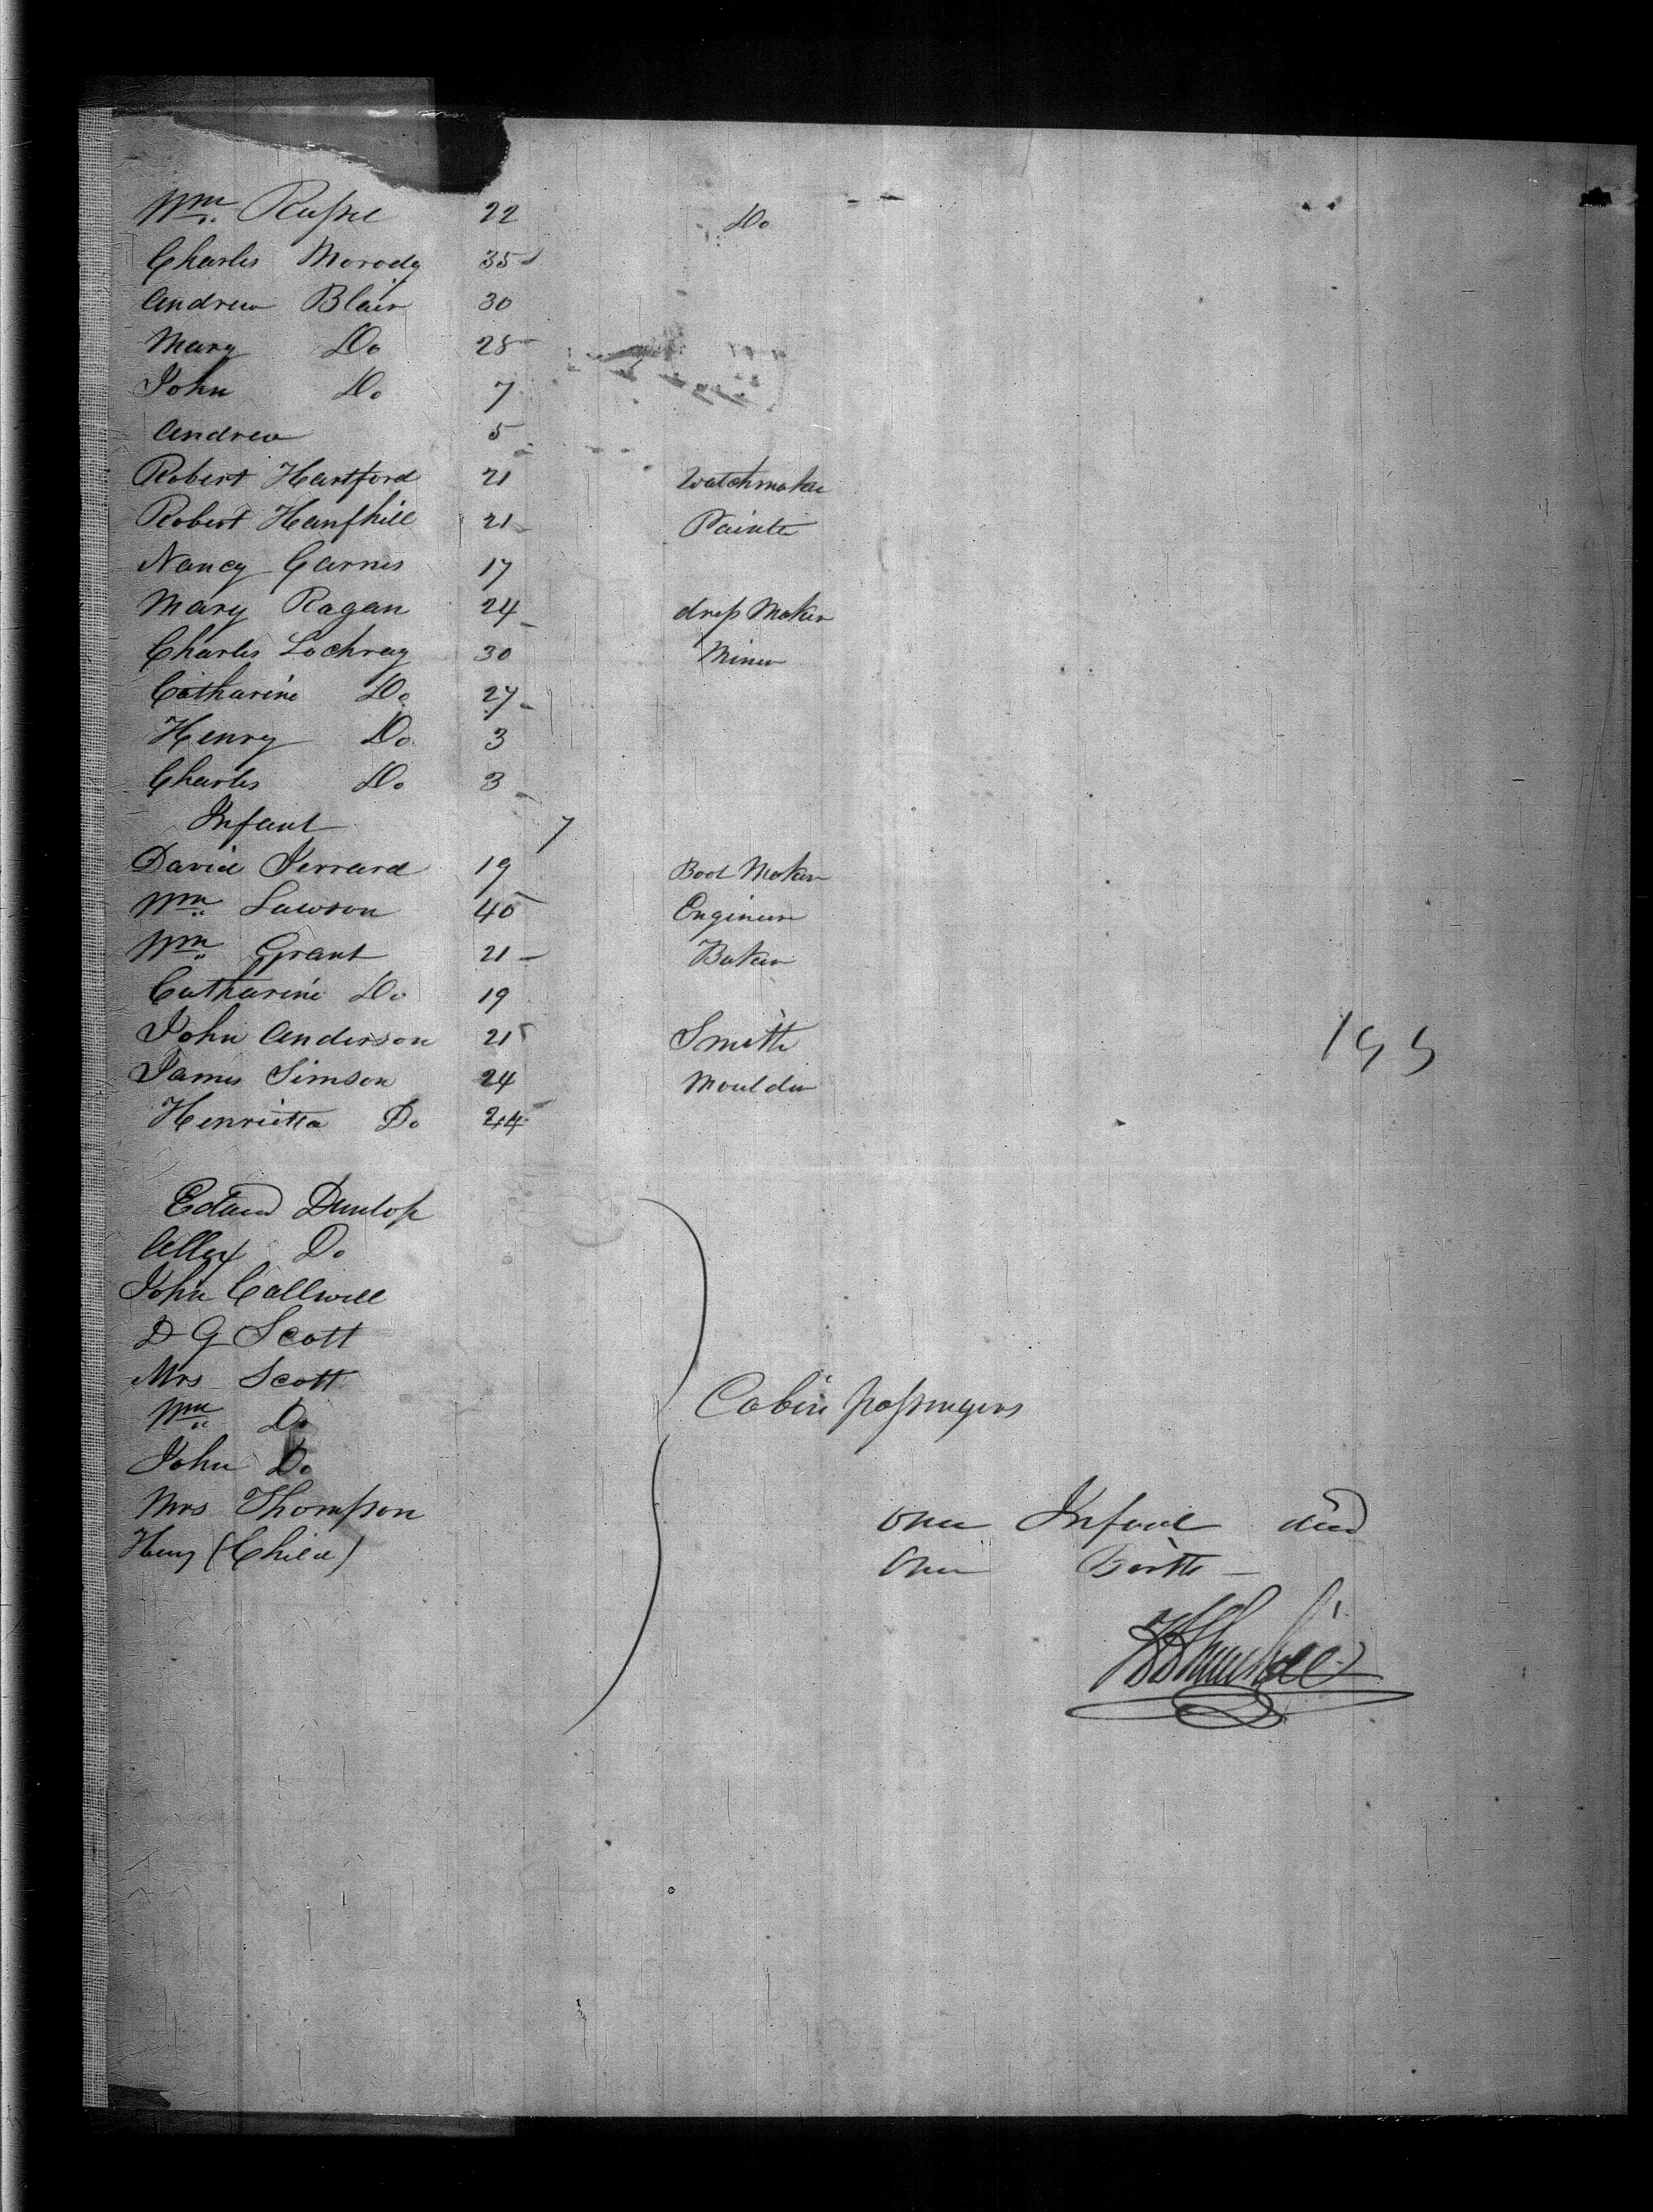 Wm Russel 22 Do
Charles Morody 35
Andrew Blair 30
Mary Do 28
John Do 7
Andrew 5
Robert Hartford 21 Watchmaker
Robert Hanfhill 21 Painter
Nancy Garnes 17
Mary Ragan 24 dress Maker
Charles Lochray 30 Miner
Catharine Do 27
Henry Do 3
Charles Do 3
Infant
David Jerrard 19 Boot Maker
Wm Lawson 40 Engineer
Wm Grant 21 Baker
Catharine Do 19
John Anderson 21 Smith
James Simson 24 Moulder
Henrietta Do 24
Edward Dunlop
Allex Do
John Callwell
D G Scott
Mrs Scott
Wm Do
Cabin passengers
John Do
Mrs Thompson
one Infant died
Henry (Child)
One Birth